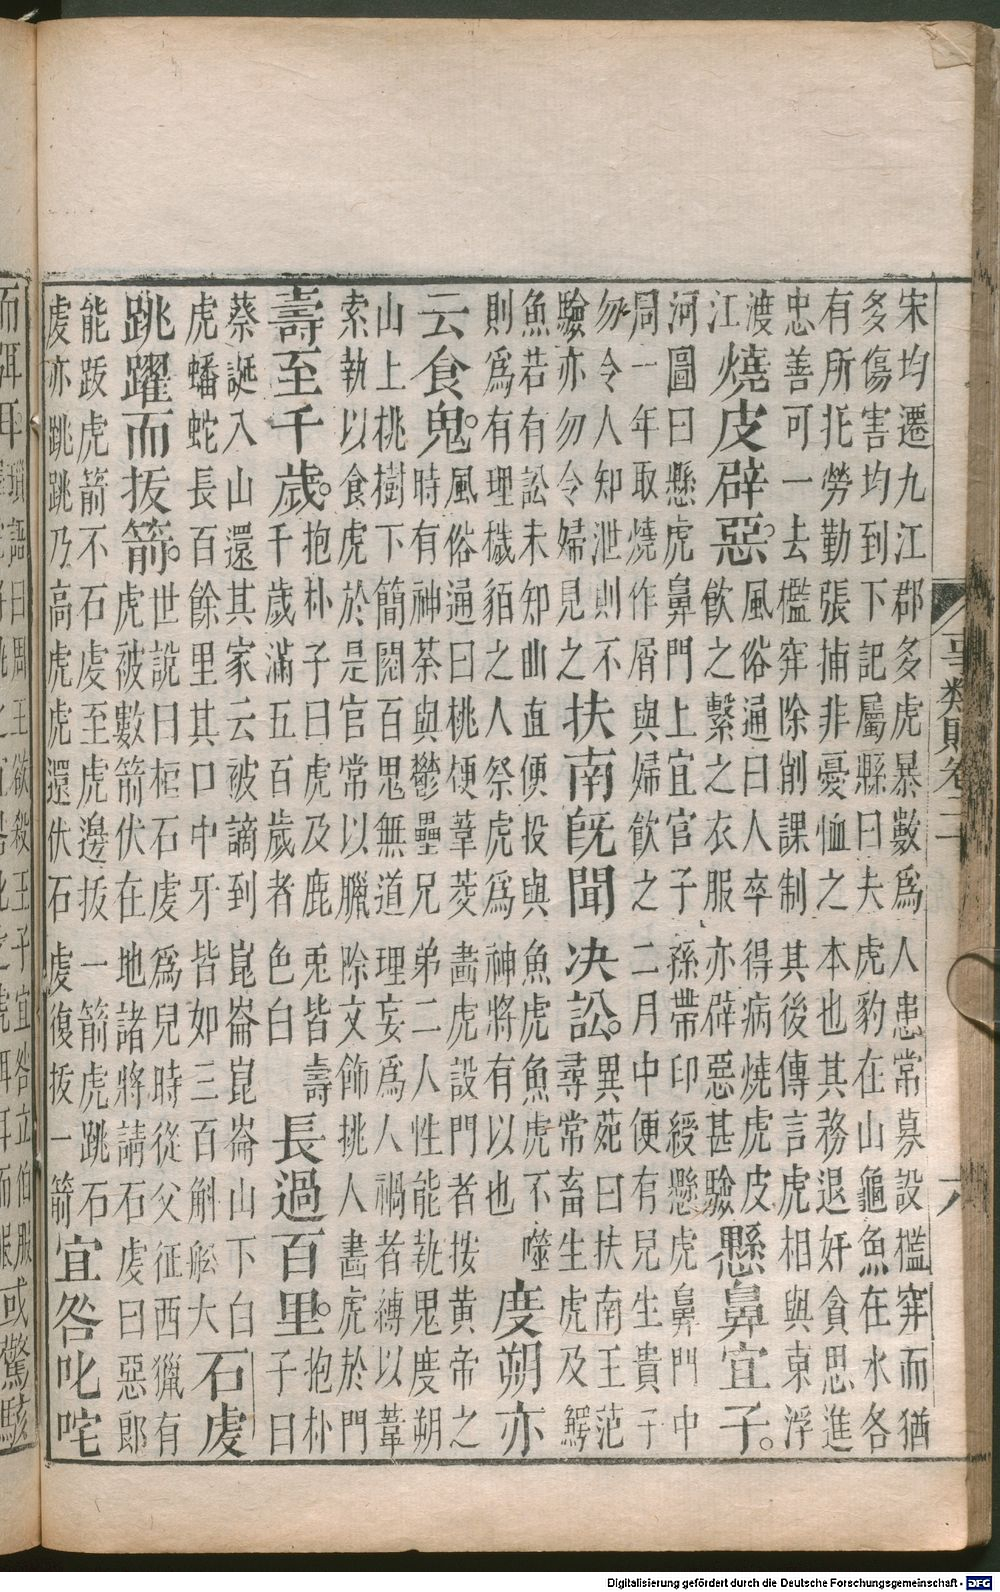 宋均遷九江郡多虎暴數為人患常募設檻穽而猶
多傷害均到下記屬縣曰夫虎豹在山龜魚在水各
有所托勞勤張捕非憂恤之本也其務退奸貪思進
忠善可一去檻穽除削課制其後傳言虎相與東浮
渡
江
燒皮辟惡。
風俗通曰人卒得病燒虎皮
飲之繫之衣服亦辟惡甚驗
懸鼻宜子。
河圖曰懸虎鼻門上宜官子孫帶印綬懸虎鼻門中
周一年取燒作屑與婦飲之二月中便有兒生貴子
勿令人知泄則不
驗亦勿令婦見之
扶南既聞決訟。
異苑曰扶南王范
尋常畜生虎及鱷
魚若有訟未知曲直便投與魚虎魚虎不噬
則為有理穢貊之人祭虎為神將有以也
度朔亦
云食鬼。
風俗通曰桃梗葦茭畫虎設門者按黃帝之
時有神荼與鬱壘兄弟二人性能執鬼度朔
山上桃樹下簡閱百鬼無道理妄為人禍者縛以葦
索執以食虎於是官常以臘除文飾桃人畫虎於門
壽至千歲。
抱朴子曰虎及鹿兎皆壽
千歲滿五百歲者色白
長過百里。
抱朴
子曰
蔡誕入山還其家云被謫到崑崙崑崙山下白
虎蟠蛇長百餘里其口中牙皆如三百斛船大
石虔
跳躍而拔箭。
世說曰桓石虔為兒時從父征西獵有
虎被數箭伏在地諸將請石虔曰惡郎
能跋虎箭不石虔至虎邊拔一箭虎跳石
虔亦跳跳乃高虎虎還伏石虔復拔一箭
宜咎叱咤
事類賦卷二十
六
而弭耳
瑣語曰周王欲殺王子宜咎立伯服
或驚駭
Digitalisierung gefördert durch die Deutsche Forschungsgemeinschaft - DFG